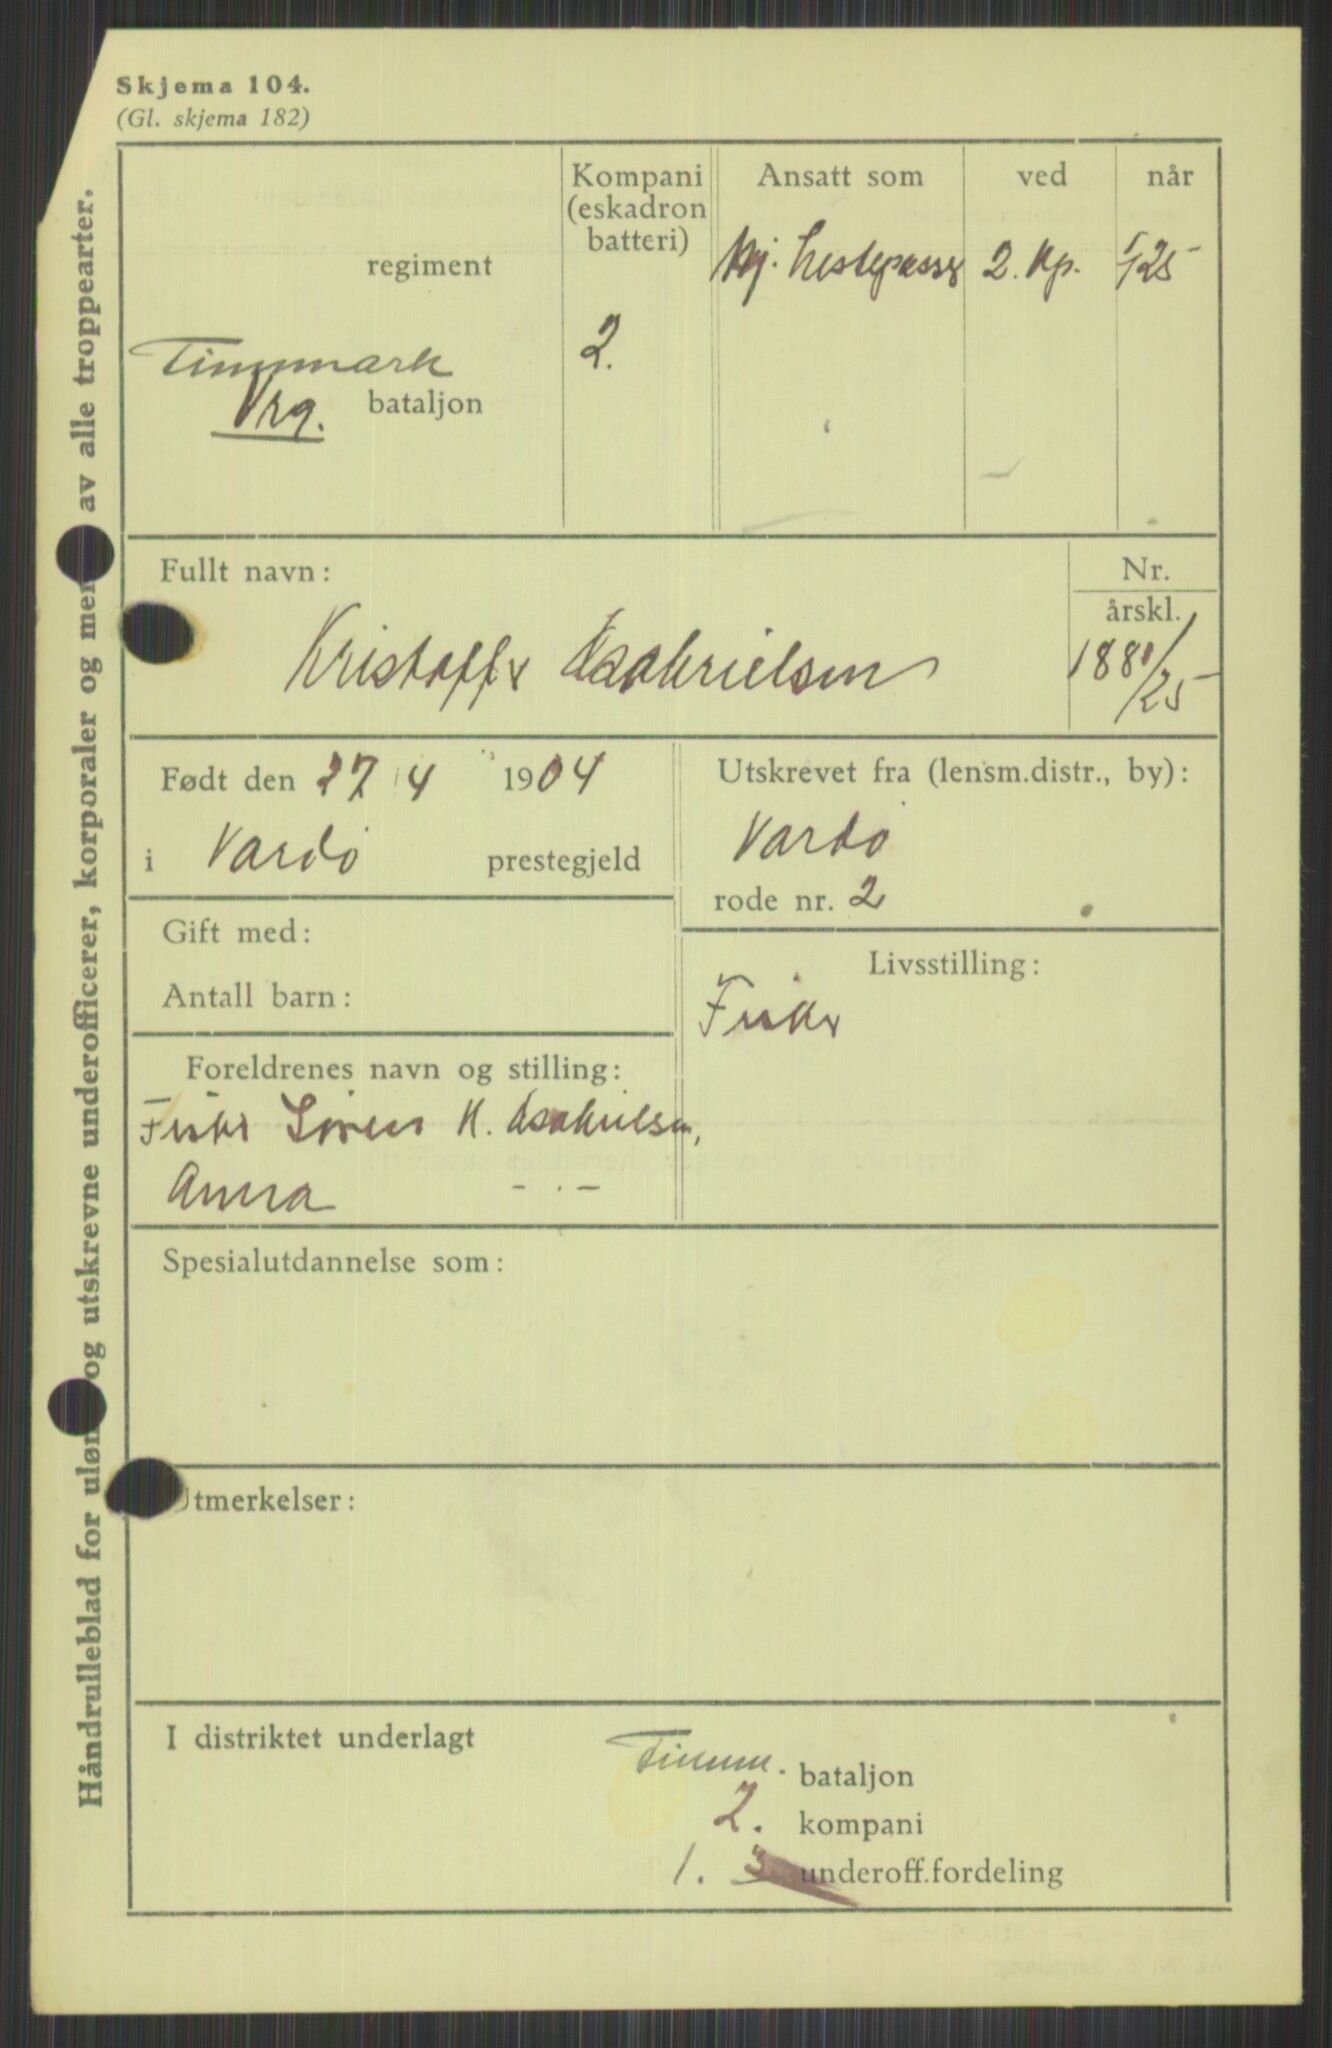 Skjema 104.
(Gl. skjema 182)
Håndrulleblad for uløn og utskrevne underofficerer, korporaler og men av alle troppearter.
regiment
Finnmark
bataljon
Kompani
(eskadron
batteri)
2.
Ansatt som
hestepasser
ved
2. Kp.
når
Fullt navn:
Kristoffer Isakrielsen
Nr.
årskl.
/25
Født den 27/4 1904
i Vardø prestegjeld
Utskrevet fra (lensm.distr., by):
Vardø
rode nr. 2
Gift med:
Antall barn:
Livsstilling:
Fisker
Foreldrenes navn og stilling:
Fisker Søren K. Isakrielsen,
Anna - . -
Spesialutdannelse som:
Utmerkelser:
I distriktet underlagt
Finnm. bataljon
2. kompani
1. 3. underoff.fordeling